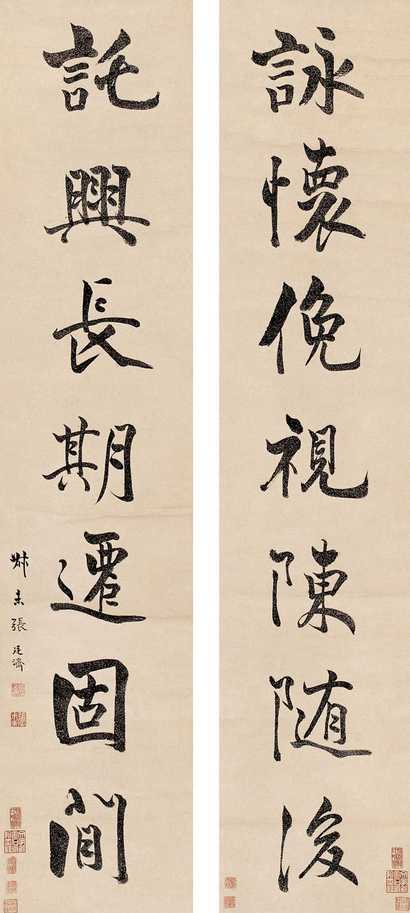 詠懷俛視陳隨後
託興長期遷固間
叔未張廷濟